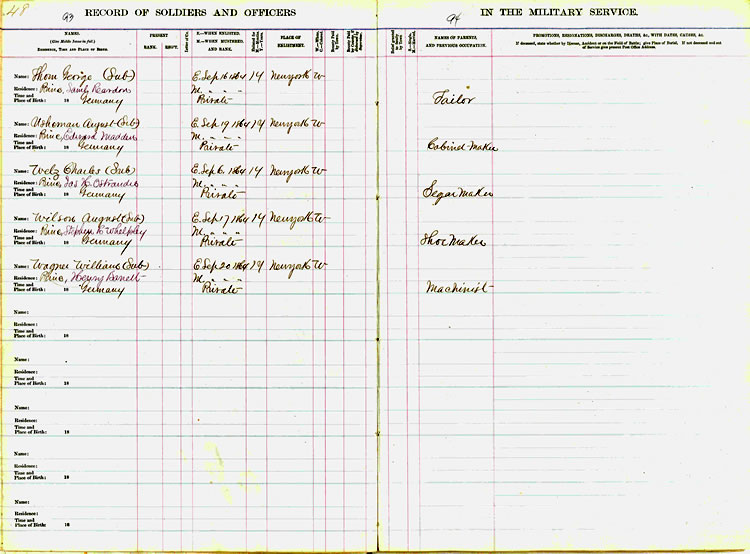 48
93
RECORD OF SOLDIERS AND OFFICERS
94
IN THE MILITARY SERVICE.
NAMES.
(Give Middle Name in full.)
RESIDENCE, TIME AND PLACE OF BIRTH.
PRESENT
RANK. REGT.
Letter of Co.
E.—WHEN ENLISTED.
M.—WHEN MUSTERED,
AND RANK.
PLACE OF
ENLISTMENT.
NAMES OF PARENTS,
AND PREVIOUS OCCUPATION.
PROMOTIONS, RESIGNATIONS, DISCHARGES, DEATHS, &c., WITH DATES, CAUSES, &c.
If deceased, state whether by Disease, Accident or on the Field of Battle; give Place of Burial. If not deceased and out
of Service give present Post Office Address.
Name: Thom George (Sub) E. Sep 16 1864 1 Y New york W
Residence: Prine, Saml Reardon M. " " "
Time and
Place of Birth: 18 Germany Private Tailor
Name: August (Sub) E. Sep 19 1864 1 Y New york W
Residence: Prine, Edward Madden M. " " "
Time and
Place of Birth: 18 Germany Private Cabinet Maker
Name: Welz Charles (Sub) E. Sep 6 1864 1 Y New york W
Residence: Prine, Jas H. Ostrander M. " " "
Time and
Place of Birth: 18 Germany Private Segar Maker
Name: Wilson August (Sub) E. Sep 17 1864 1 Y New york W
Residence: Prine, Stephen Whelpley M. " " "
Time and
Place of Birth: 18 Germany Private Shoe Maker
Name: Wagner William (Sub) E. Sep 20 1864 1 Y New york W
Residence: Prine, Henry M. " " "
Time and
Place of Birth: 18 Germany Private Machinist
Name:
Residence:
Time and
Place of Birth: 18
Name:
Residence:
Time and
Place of Birth: 18
Name:
Residence:
Time and
Place of Birth: 18
Name:
Residence:
Time and
Place of Birth: 18
Name:
Residence:
Time and
Place of Birth: 18